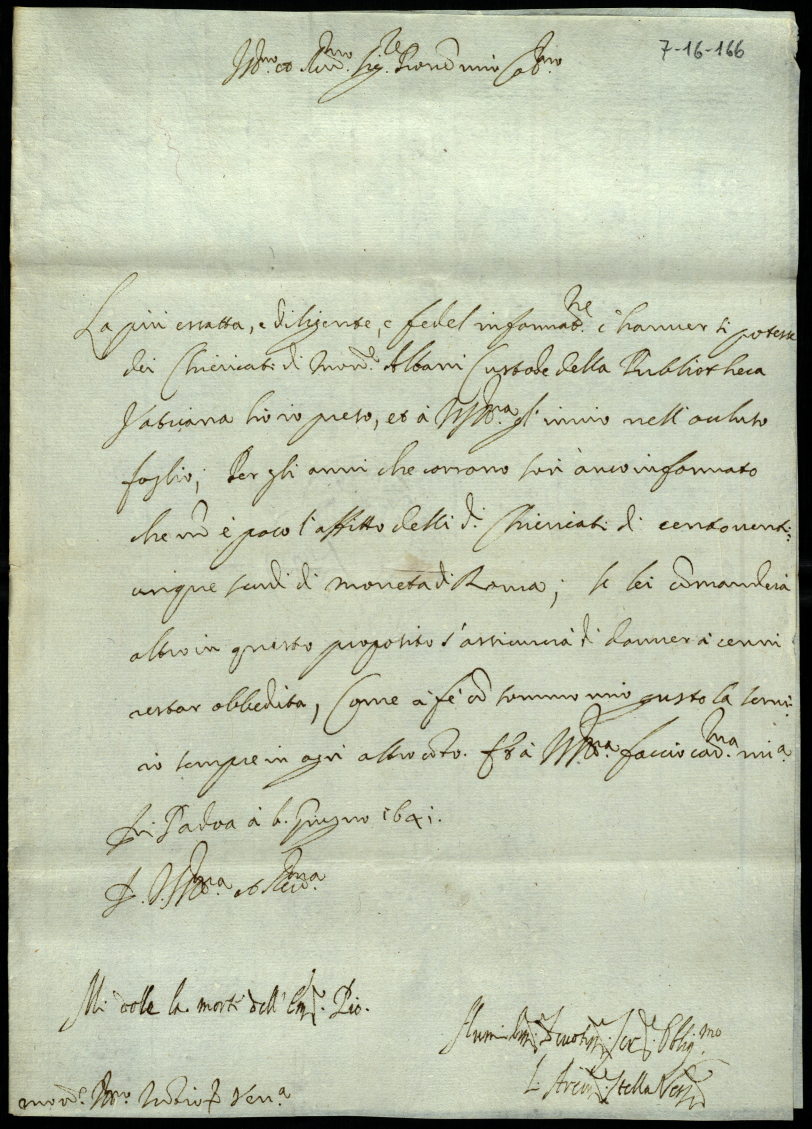 7-16-166
Ill.mo et Rev.mo Sig.re Pron mio Col.mo
La più essatta, e diligente, e fedel informat.ne c'hauer si potesse
dei Chiericati di Mons.r Albani Custode della Bibliotheca
Vaticana hò io preso, et à V.S. Ill.ma gl'inuio nell'accluso
foglio; Per gli anni che corrono son anco informato
che è poco l'affitto delli d.i Chiericati di centouenti:
cinque scudi di moneta di Roma; se lei comanderà
altro in questo proposito s'assicurerà di douer à cenni
restar obbedita, Come à fè con sommo mio gusto la serui:
rò sempre in ogni altro conto. Et à V.S. Ill.ma faccio riu.ma mia
Di Padoa à 6. Giugno 1641.
D. V.S. Ill.ma et Reu.ma
Mi dolle la morte dell' Em. Pio.
Humiliss. Deuotiss. Ser. Oblig.mo
L' Stella
mons. Nõtio Ven.a